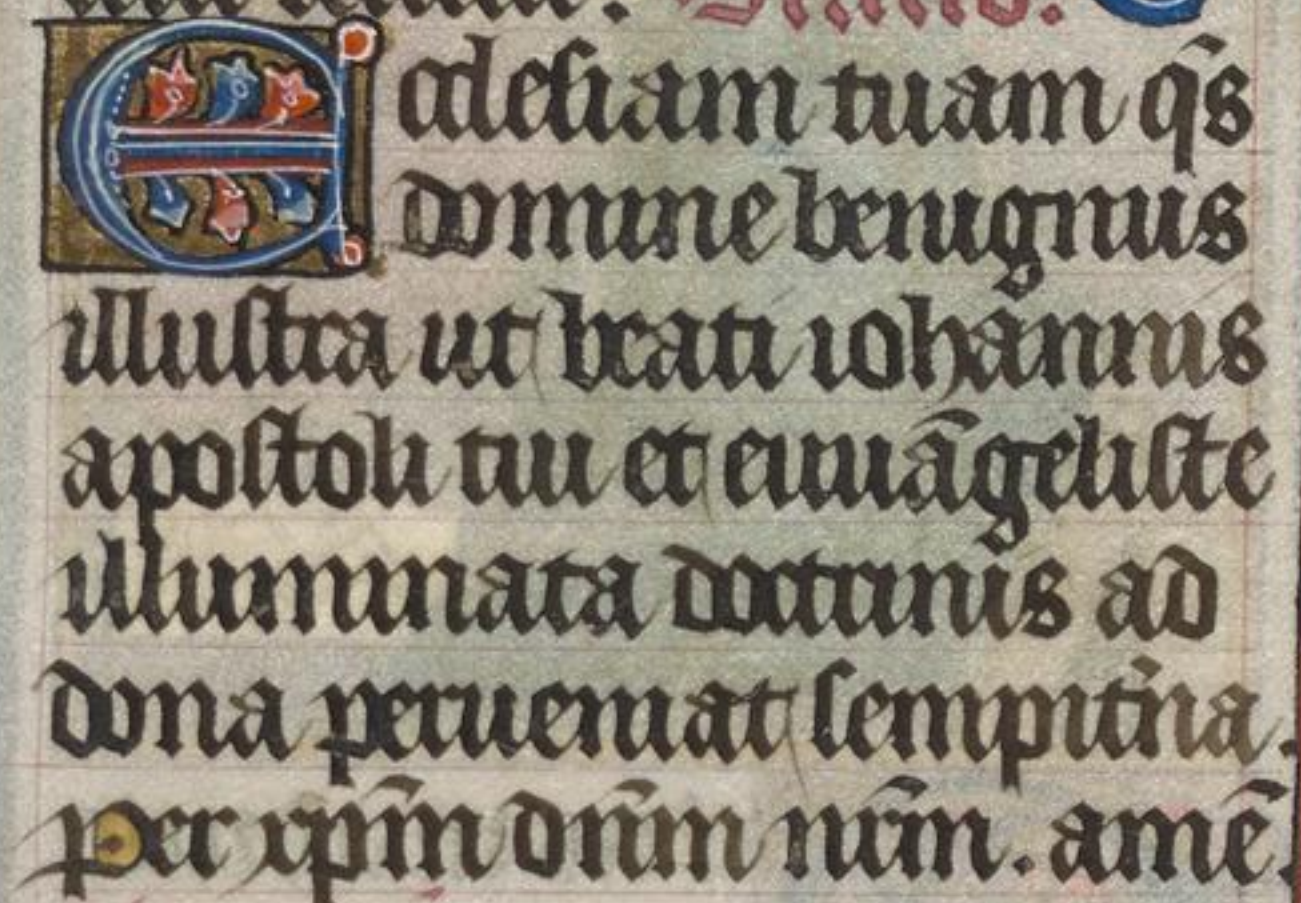 Ecclesiam tuam q̄s
domine benignus
illustra ut beati iohannis
apostoli tui et euuāgeliste
illuminata doctrinis ad
dona perueniat sempit̄na.
Per xp̄m dn̄m nr̄m. amē.